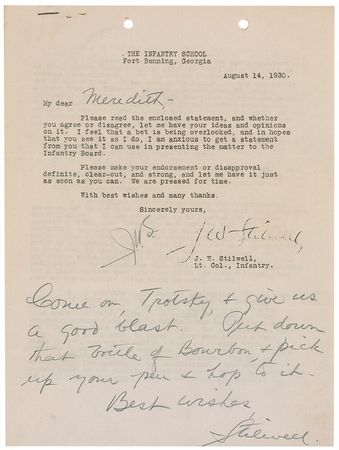 THE INFANTRY SCHOOL
Fort Benning, Georgia
August 14, 1930.
My dear Meredith,-
Please read the enclosed statement, and whether
you agree or disagree, let me have your ideas and opinions
on it. I feel that a bet is being overlooked, and in hopes
that you see it as I do, I am anxious to get a statement
from you that I can use in presenting the matter to the
Infantry Board.
Please make your endorsement or disapproval
definite, clear-cut, and strong, and let me have it just
as soon as you can. We are pressed for time.
With best wishes and many thanks.
Sincerely yours,
J W Stilwell,
J. W. Stilwell,
Lt. Col., Infantry.
Come on, Trotsky, & give us
a good blast. Put down
that bottle of Bourbon & pick
up your pen & hop to it.
Best wishes,
Stilwell.